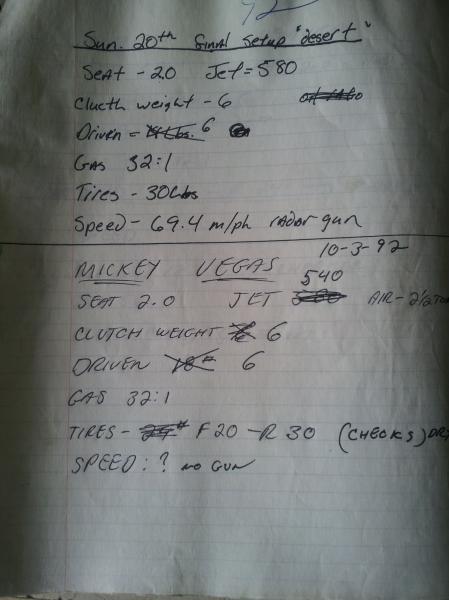 92
Sun. 20th final setup "desert"
Seat - 20 Jet = 580
Clucth weight - 6
Driven = 6
Gas 32:1
Tires - 30Lbs
Speed - 69.4 m/ph rador gun
10-3-92
MICKEY VEGAS
540
SEAT 2.0 JET AIR - 2½
CLUTCH WEIGHT 6
DRIVEN 6
GAS 32:1
TIRES - F20 - R 30 (CHECKS)
SPEED: ? NO GUN